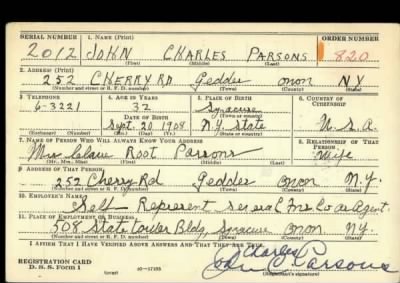 SERIAL NUMBER 1. NAME (Print) ORDER NUMBER
2012 JOHN CHARLES PARSONS 820
(First) (Middle) (Last)
2. ADDRESS (Print)
252 CHERRY RD Geddes onon NY
(Number and street or R. F. D. number) (Town) (County) (State)
3. TELEPHONE 4. AGE IN YEARS 5. PLACE OF BIRTH 6. COUNTRY OF CITIZENSHIP
6-3221 32 Syracuse
DATE OF BIRTH (Town or county)
Sept. 20 1908 N.Y. State U.S.A.
(Exchange) (Number) (Mo.) (Day) (Yr.) (State or country)
7. NAME OF PERSON WHO WILL ALWAYS KNOW YOUR ADDRESS 8. RELATIONSHIP OF THAT PERSON
Mrs Root Parsons Wife
(Mr., Mrs., Miss) (First) (Middle) (Last)
9. ADDRESS OF THAT PERSON
252 Cherry Rd Geddes onon N.Y.
(Number and street or R. F. D. number) (Town) (County) (State)
10. EMPLOYER'S NAME
Self Represent several Ins Co as Agent.
11. PLACE OF EMPLOYMENT OR BUSINESS
508 State Tower Bldg, Syracuse onon. NY.
(Number and street or R. F. D. number) (Town) (County) (State)
I AFFIRM THAT I HAVE VERIFIED ABOVE ANSWERS AND THAT THEY ARE TRUE.
REGISTRATION CARD
D. S. S. Form 1 John Charles Parsons